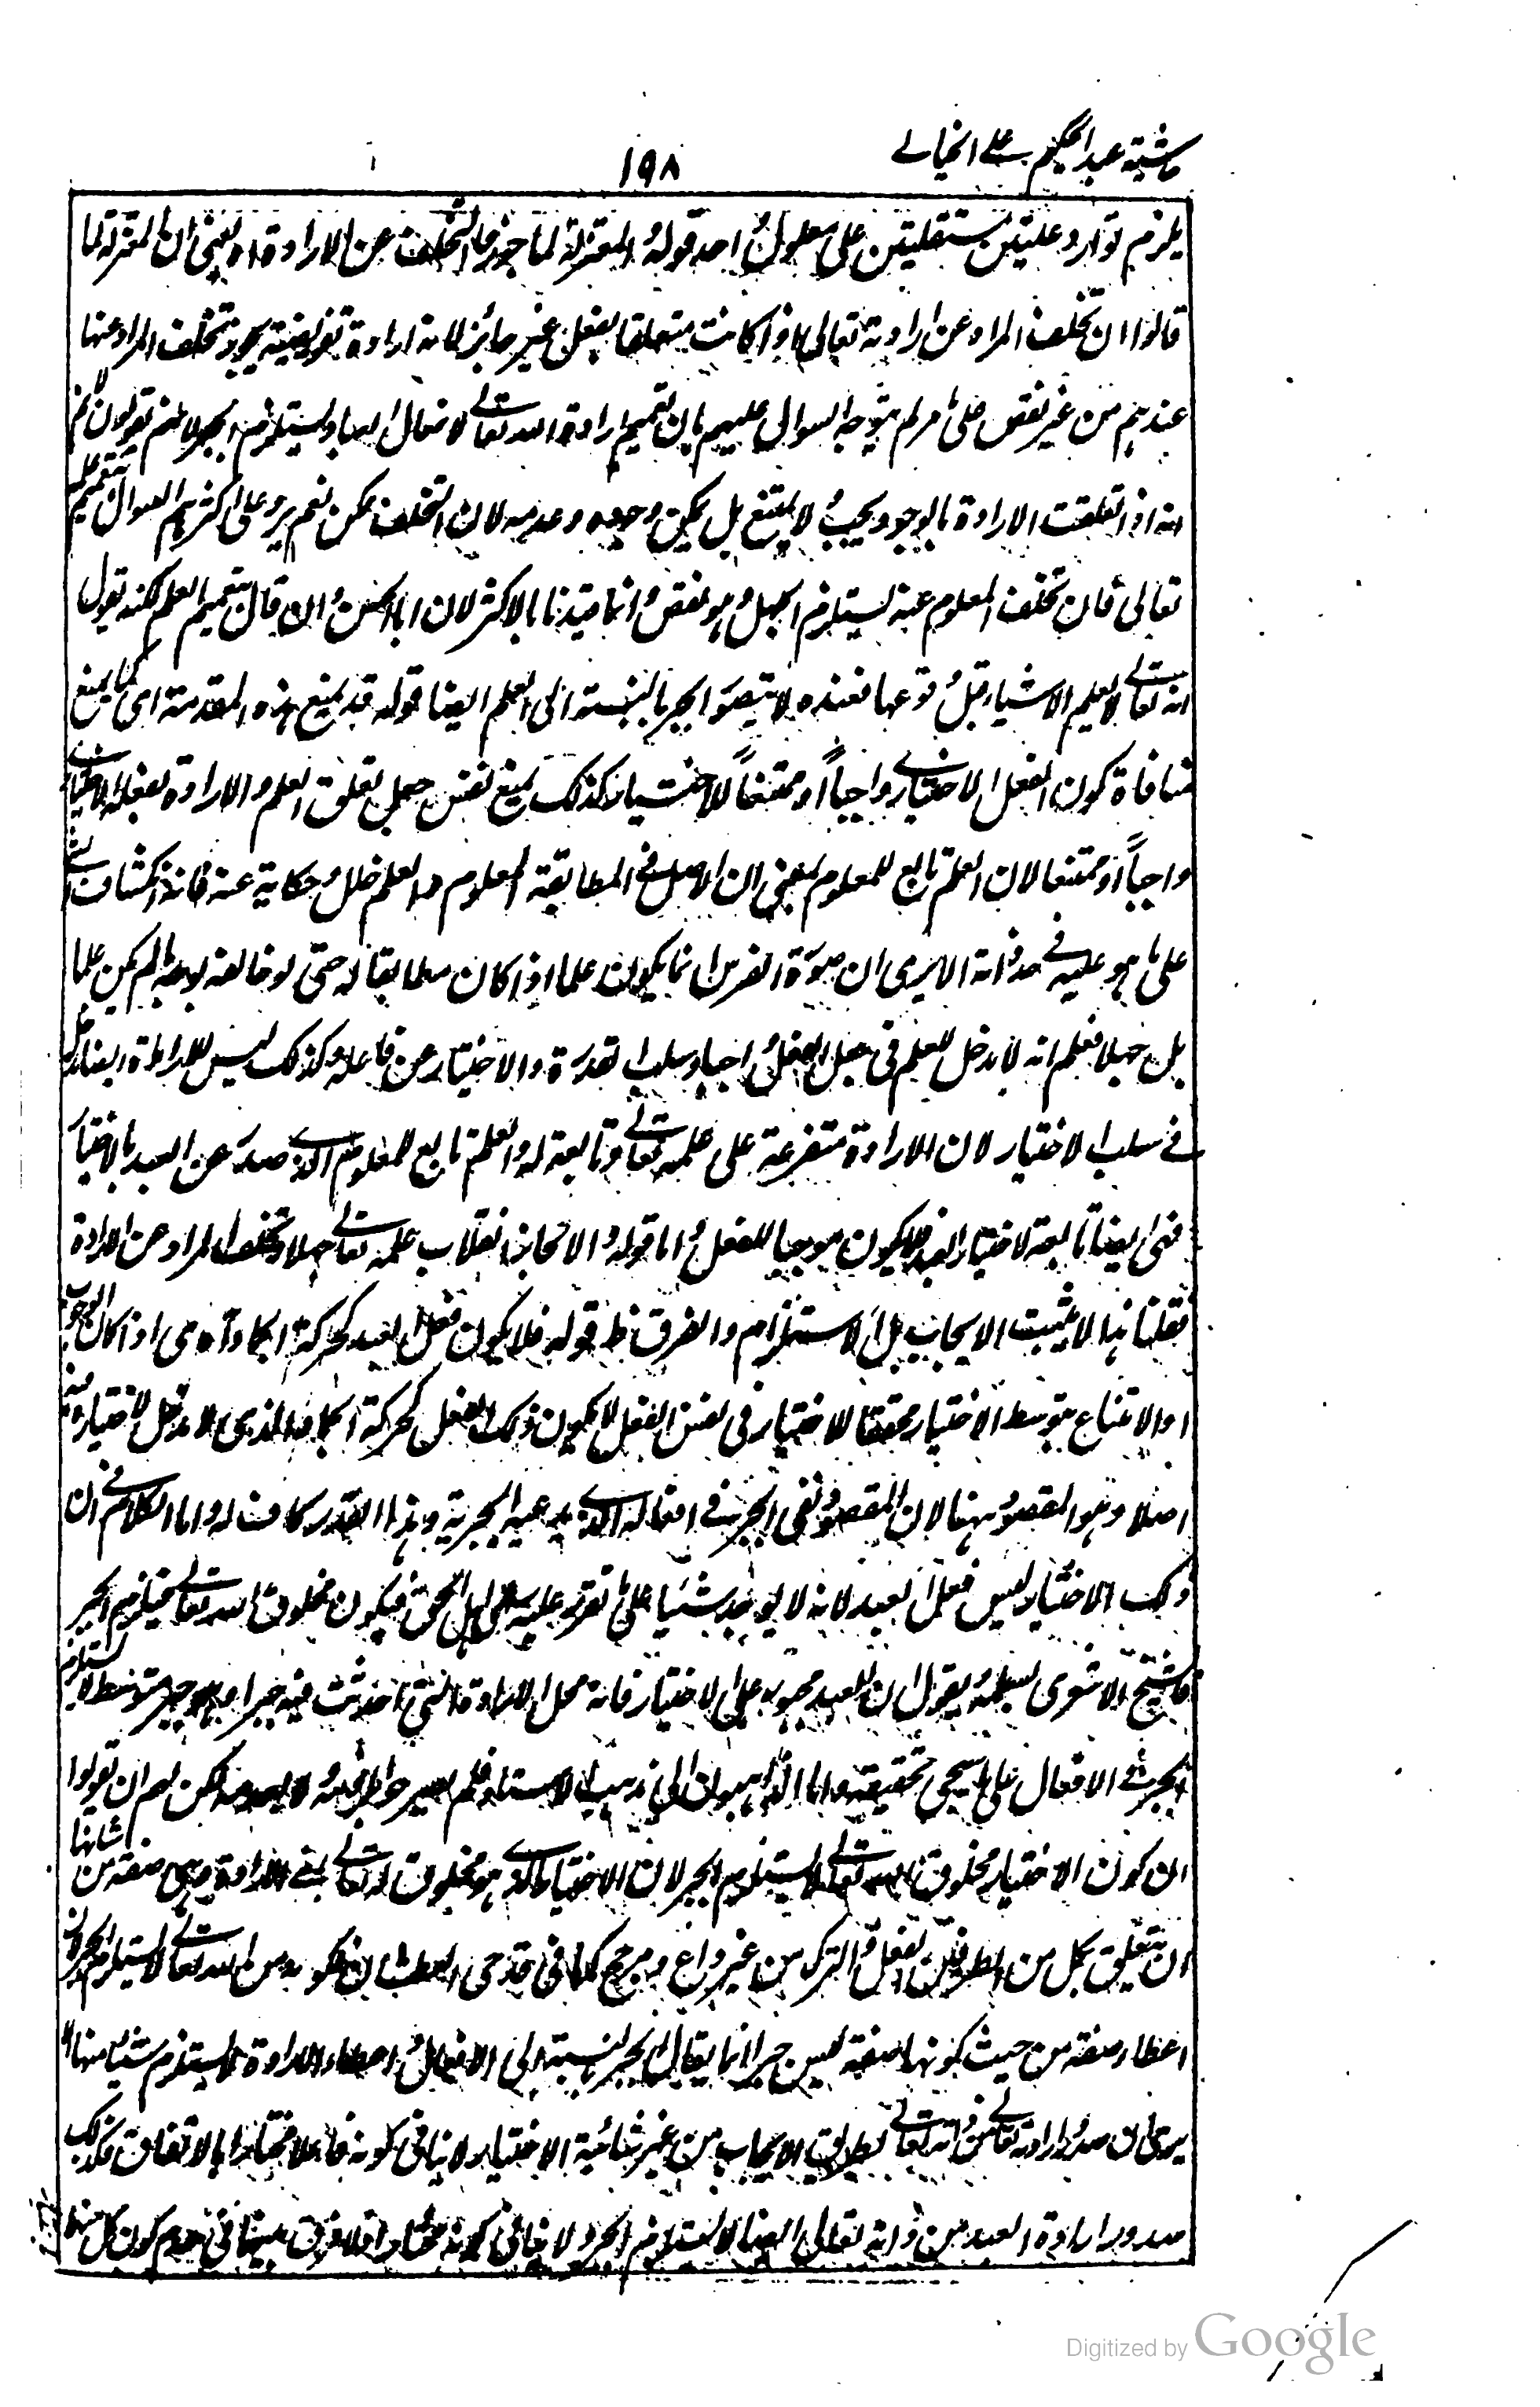 حاشية عبد الحكيم على الخيالي
١٩٨
يلزم توارد علتين مستقلتين على معلول واحد قوله المعتزلة لما جوزوا التخلف عن الارادة اه يعني ان المعتزلة لما
قالوا ان تخلف المراد عن ارادته تعالى اذا كانت متعلقا بفعل غيره جائز لانه ارادة تفويضية يجوز تخلف المراد عنها
عندهم من غير نقص على ما مر لم يتوجه السوال عليهم بان تعميم ارادة الله تعالى لافعال العباد يستلزم الجبر لانهم يقولون لا نم
انه اذا تعلقت الارادة بالوجود يجب او لا يمتنع بل يمكن وجوده وعدمه لان التخلف ممكن نعم يرد على اكثرهم السوال بتعميم علمه
تعالى فان تخلف المعلوم عنه يستلزم الجهل وهو نقص وانما قيدنا بالاكثر لان ابا الحسين وان قال بتعميم العلم لكنه يقول
انه تعالى لا يعلم الاشياء قبل وقوعها فعنده لا يتصور الجبر بالنسبة الى العلم ايضا قوله قد يمنع هذه المقدمة اى كما يمنع
منافاة كون الفعل الاختياري واجباً او ممتنعاً للاختيار كذلك يمنع نفس جعل تعلق العلم والارادة بفعله الاختياري
واجباً او ممتنعا لان العلم تابع للمعلوم بمعنى ان الاصل في المطابقة المعلوم والعلم ظل وحكاية عنه فانه انكشاف الشئ
على ما هو عليه في حد ذاته الا يرى ان صورة الفرس انما يكون علما اذا كان مطابقا له حتى لو خالفه بوجه ما لم يكن علما
بل جهلا فعلم انه لا مدخل للعلم في جعل الفعل واجبا وسلب القدرة والاختيار عن فاعله وكذلك ليس للارادة ايضا مدخل
في سلب الاختيار لان الارادة متفرعة على علمه تعالى وتابعة له والعلم تابع للمعلوم الذي صدر عن العبد بالاختيار
فهى ايضا تابعة لاختيار العبد فلا يكون موجبا للفعل واما قوله والا لجاز انقلاب علمه تعالى جهلا وتخلف المراد عن الارادة
فقلنا هذا لا يثبت الايجاب بل الاستلزام والفرق ظ قوله فلا يكون فعل العبد كحركة الجماد آه اى اذا كان الوجوب
او الامتناع بتوسط الاختيار محققا للاختيار في نفس الفعل لا يكون ذلك الفعل كحركة الجماد الذى لا مدخل لاختياره فيه
اصلا وهو المقصود ههنا لان المقصود نفى الجبر في افعاله الذي يدعيه الجبرية وهذا القدر كاف له واما الكلام في ان
ذلك الاختيار ليس فعل العبد لانه لا يوجد شيئا على ما تقرر عليه راى اهل الحق فيكون مخلوق الله تعالى فيلزم الجبر
فالشيخ الاشعرى يسلمه يقول ان العبد مجبور على الاختيار فانه محل الارادة التي احدثت فيه جبرا وهو جبر متوسط لا يستلزم
الجبر في الافعال على ما سيجئ تحقيقه واما الذاهبون الى مذهب الاستاذ فلم لكن لهم ان يقولوا
ان كون الاختيار مخلوق الله تعالى لا يستلزم الجبر لان الاختيار الذي هو مخلوق له تعالى بمعنى الارادة وهى صفة من شانها
ان يتعلق بكل من الطرفين الفعل والترك من غير داع ومرجح كما في قدحى العطشان فكونه من الله تعالى لا يستلزم الجبر لان
اعطاء صفة من حيث كونها صفة ليس جبرا انما يقال الجبر بالنسبة الى الافعال واعطاء الارادة لا يستلزم شيئا منها الا
يرى ان صدور ارادته تعالى من ذاته تعالى بطريق الايجاب من غير شائبة الاختيار ولا ينافي كونه فاعلا مختارا بالاتفاق فكذلك
صدور ارادة العبد من ذاته تعالى ايضا لا يستلزم الجبر ولا ينافي كونه مختارا اذ لا فرق بينهما في عدم كون كل منهما
Digitized by Google